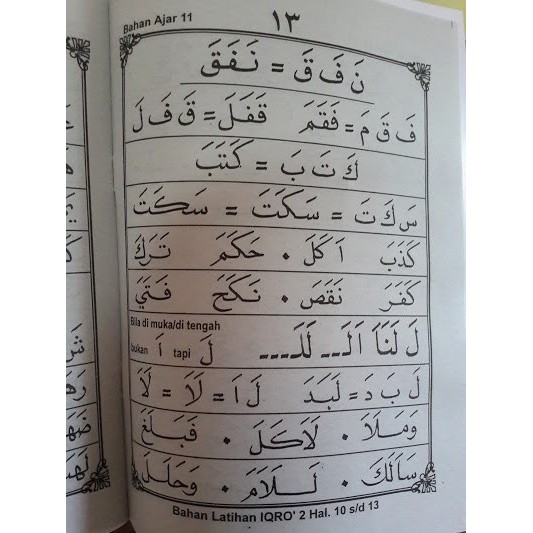 Bahan Ajar 11
١٣
نَ فَ قَ = نَفَقَ
فَ قَ مَ = فَقَمَ قَ فَ لَ = قَفَلَ
كَ تَ بَ = كَتَبَ
سَ كَ تَ = سَكَتَ = سَكَتَ
كَذَبَ اَكَلَ . حَكَمَ تَرَكَ
كَفَرَ نَقَصَ . نَكَحَ فَتَيَ
Bila di muka/di tengah
لَ لَنَاَ لَـ ـلَـ
bukan اَ tapi لَ
لَ بَ دَ = لَبَدَ لَ اَ = لَاَ = لَا
وَمَلَاَ . لَاَكَلَ . فَبَلَغَ
سَاَلَكَ . لَــلَاَمَ . وَحَلَـلَ
Bahan Latihan IQRO' 2 Hal. 10 s/d 13